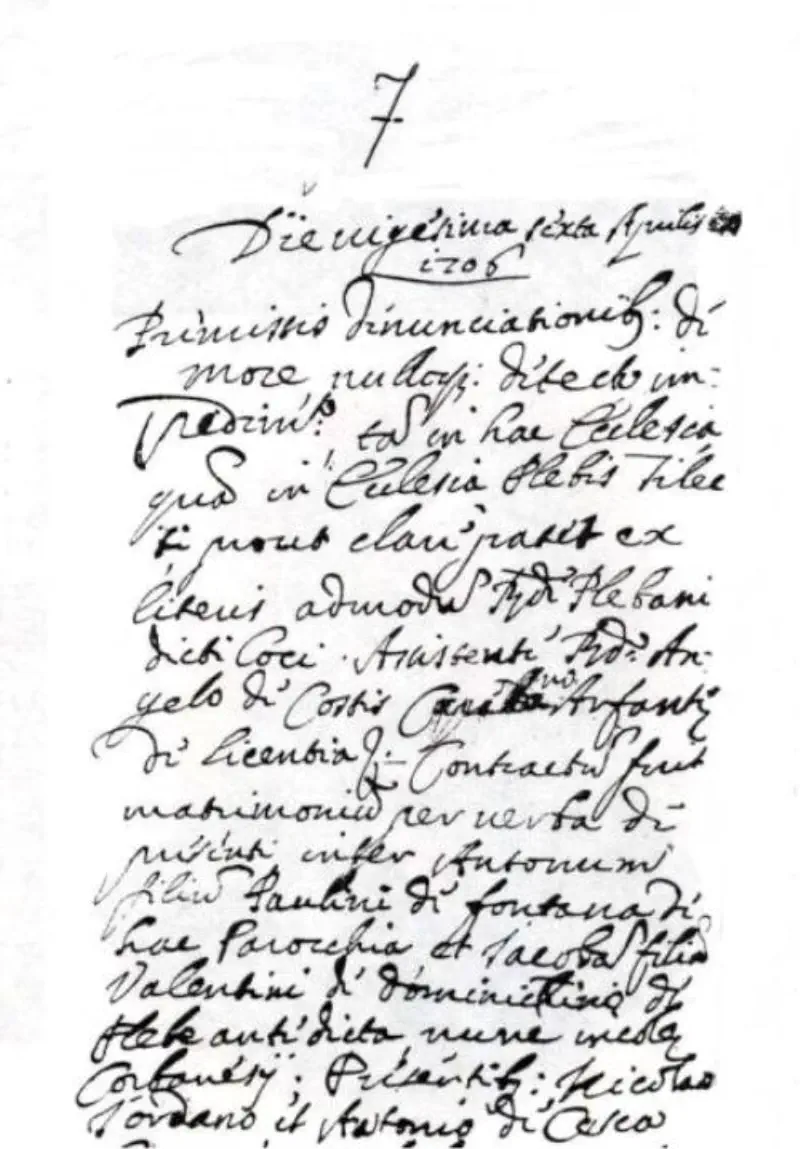 7
Die vigesima sexta Aprilis
1706
Premissis denunciationib9: de
more nulloq;: detecto im-
pedim.to, tã in hac Ecclesia
quã in Ecclesia Plebis
prout clare patet ex
literis admodũ R.di Plebani
dicti loci. Assistente R.do An-
gelo de Costis
de licentia &.- Contractũ fuit
matrimoniũ per verba de
presenti inter Antonium
filiũ Paulini de fontana de
hac Parocchia et Jacobã filiã
Valentini de Dominichinis de
Plebe antedicta, nunc incolę
Corbanesij: Presentib9: Nicolao
Jordano et Antonio de Casca